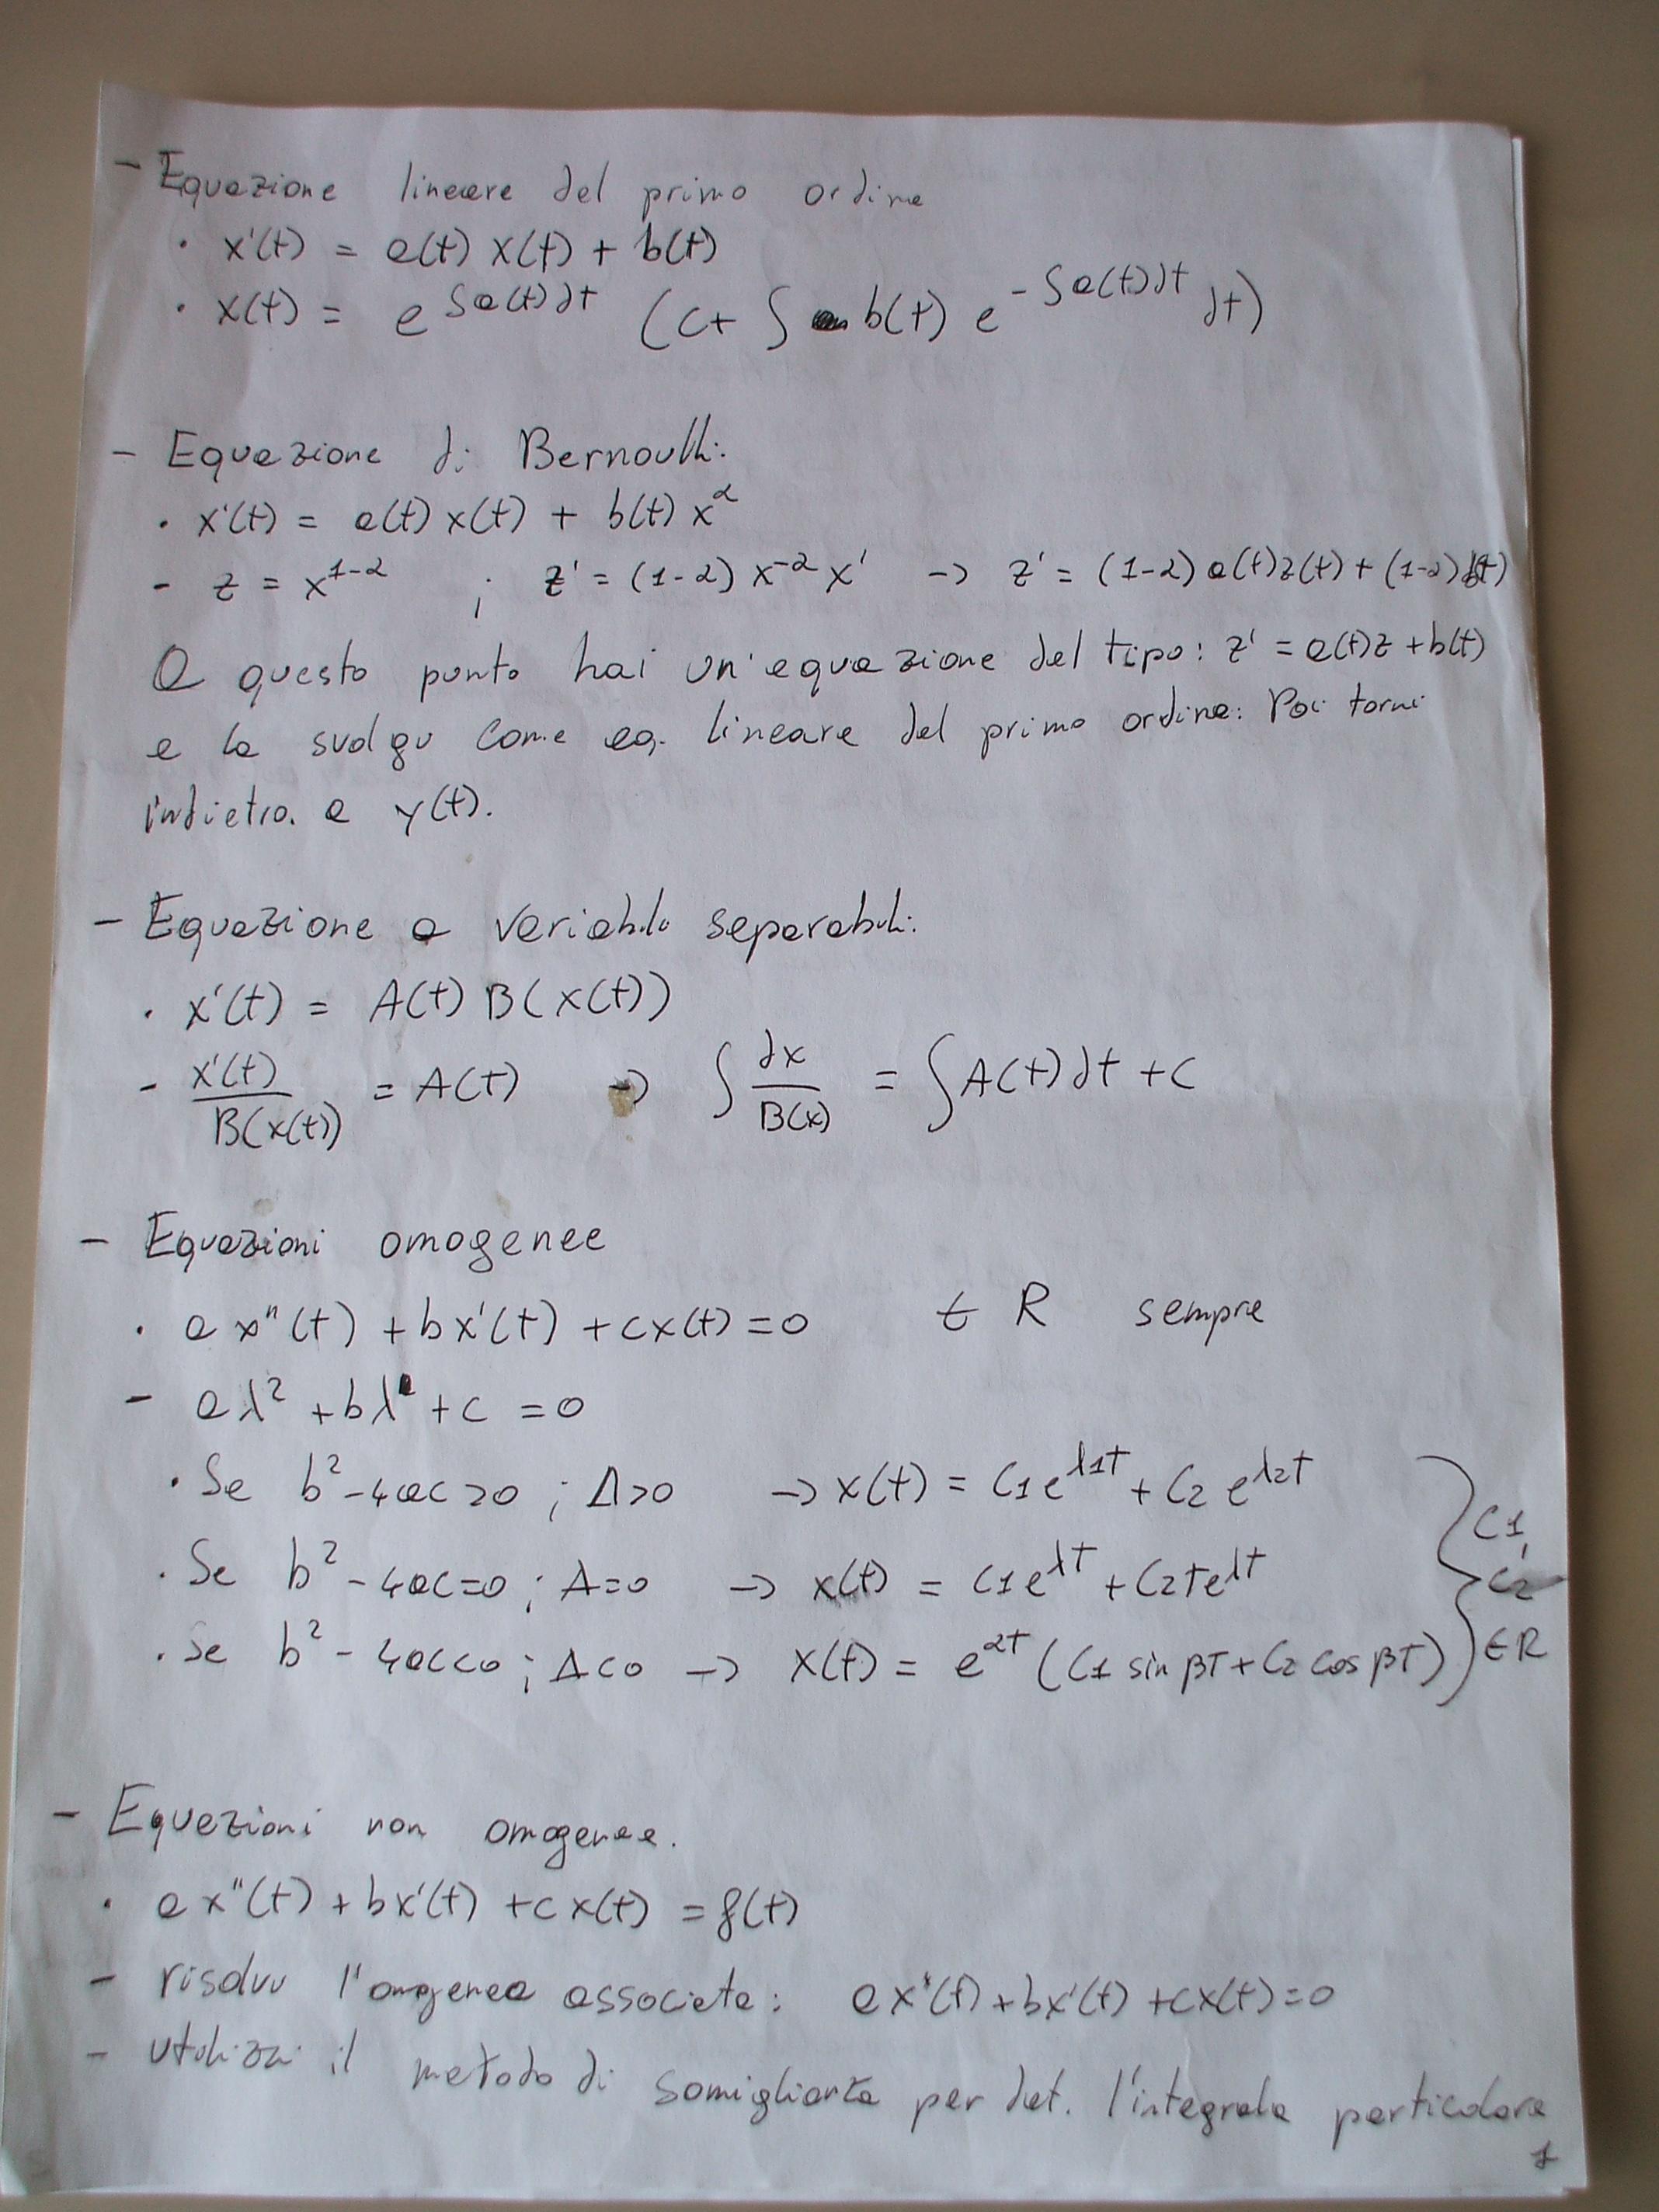 - Equazione lineare del primo ordine
· x'(t) = a(t) x(t) + b(t)
· x(t) = e^{∫a(t)dt} (c+ ∫ b(t) e^{-∫a(t)dt} dt)
- Equazione di Bernoulli:
· x'(t) = a(t) x(t) + b(t) x^α
- z = x^{1-α} ; z' = (1-α) x^{-α} x' -> z' = (1-α) a(t)z(t) + (1-α)b(t)
A questo punto hai un'equazione del tipo: z' = a(t)z + b(t)
e la svolgo come eq. lineare del primo ordine. Poi torni
indietro a y(t).
- Equazione a variabili separabili:
· x'(t) = A(t) B(x(t))
- x'(t)/B(x(t)) = A(t) -> ∫ dx/B(x) = ∫A(t)dt + c
- Equazioni omogenee
· a x''(t) + bx'(t) + cx(t) = 0 ∈ R sempre
- aλ² + bλ + c = 0
· Se b² - 4ac > 0 ; Δ>0 -> x(t) = C1e^{λ1t} + C2 e^{λ2t}
· Se b² - 4ac = 0 ; Δ=0 -> x(t) = C1e^{λt} + C2te^{λt}
· Se b² - 4ac < 0 ; Δ<0 -> x(t) = e^{αt} (C1 sin βt + C2 cos βt) } C1, C2 ∈ R
- Equazioni non omogenee.
· a x''(t) + bx'(t) + cx(t) = f(t)
- risolvi l'omogenea associata: a x''(t) + bx'(t) + cx(t) = 0
- utilizzi il metodo di somiglianza per det. l'integrale particolare
1